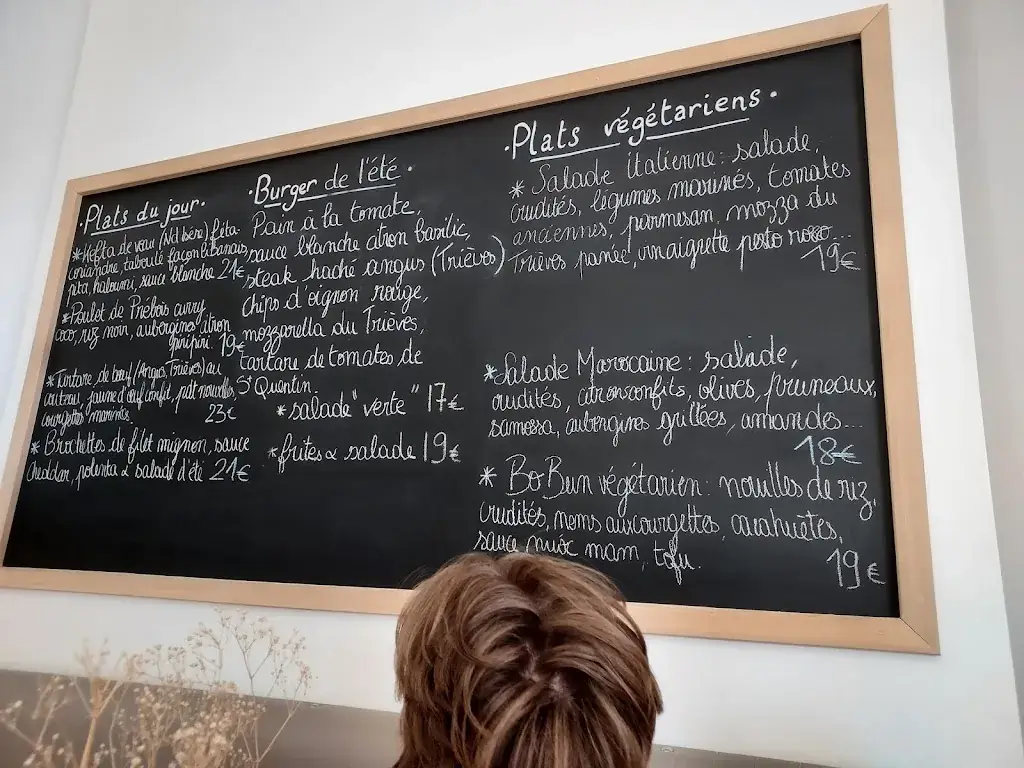 • Plats du jour •
* Kefta de veau (Nd Isère) feta
coriandre, taboulé façon libanais,
pita, haloumi, sauce blanche 21€
* Poulet de Prébois curry
coco, riz noir, aubergines citron
piripiri. 19€
* Tartare de bœuf (Angus, Trièves) au
couteau, jaune d'œuf confit, pdt nouvelles,
courgettes marinées. 23€
* Brochettes de filet mignon, sauce
cheddar, polenta & salade d'été 21€
• Burger de l'été •
Pain à la tomate,
sauce blanche citron basilic,
steak haché angus (Trièves)
chips d'oignon rouge,
mozzarella du Trièves,
tartare de tomates de
St Quentin
* salade "verte" 17€
* frites & salade 19€
• Plats végétariens •
* Salade italienne : salade,
crudités, légumes marinés, tomates
anciennes, parmesan, mozza du
Trièves panée, vinaigrette pesto rosso...
19€
* Salade Marocaine : salade,
crudités, citrons confits, olives, pruneaux,
samossa, aubergines grillées, amandes...
18€
* BoBun végétarien : nouilles de riz,
crudités, nems aux courgettes, cacahuètes,
sauce nuoc mam, tofu.
19€